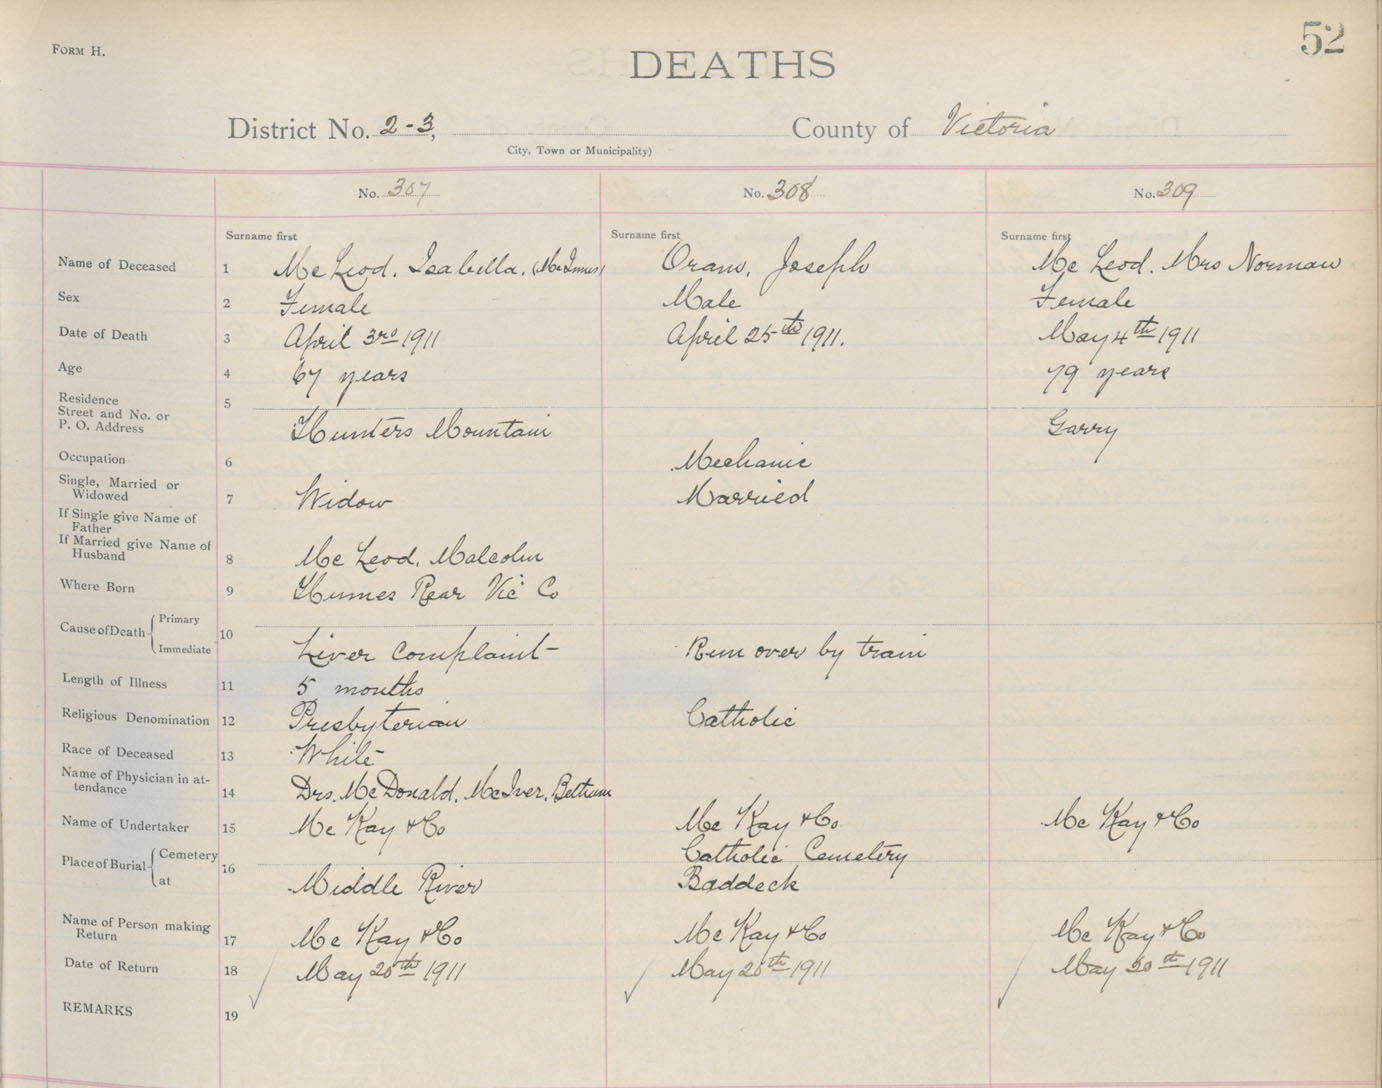 FORM H.
52
DEATHS
District No. 2-3, County of Victoria
City, Town or Municipality)
No. 307 No. 308 No. 309
Surname first Surname first Surname first
Name of Deceased 1 Mc Leod, Isabella, (McInnis) Oram, Joseph Mc Leod. Mrs Norman
Sex 2 Female Male Female
Date of Death 3 April 3rd 1911 April 25th 1911. May 4th 1911
Age 4 67 years 79 years
Residence 5
Street and No. or
P. O. Address Hunters Mountain Garry
Occupation 6 Mechanic
Single, Married or
Widowed 7 Widow Married
If Single give Name of
Father
If Married give Name of
Husband 8 Mc Leod, Malcolm
Where Born 9 Humes Rear Vic Co
Cause of Death Primary 10
Immediate Liver Complaint Run over by train
Length of Illness 11 5 months
Religious Denomination 12 Presbyterian Catholic
Race of Deceased 13 White
Name of Physician in at-
tendance 14 Drs. McDonald, McIver,
Name of Undertaker 15 Mc Kay & Co Mc Kay & Co. Mc Kay & Co
Place of Burial Cemetery 16 Catholic Cemetery
at Middle River Baddeck
Name of Person making
Return 17 Mc Kay & Co Mc Kay & Co Mc Kay & Co
Date of Return 18 May 20th 1911 May 20th 1911 May 20th 1911
REMARKS 19